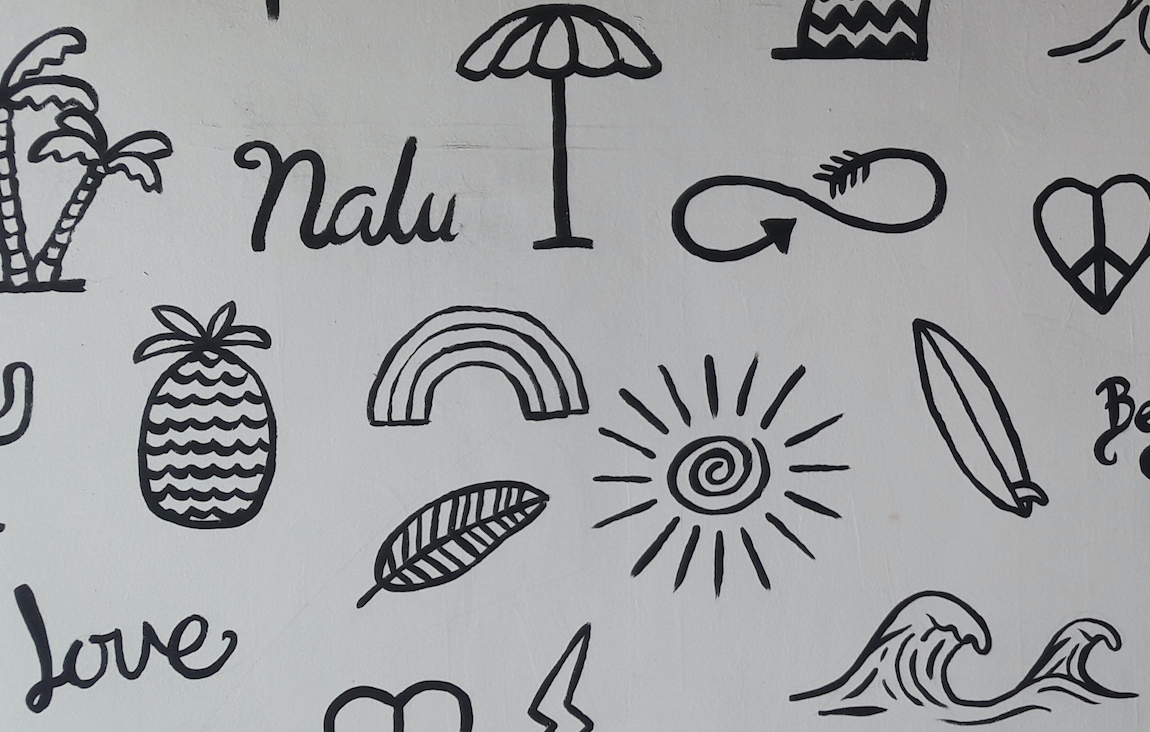 Nalu
Be
Love